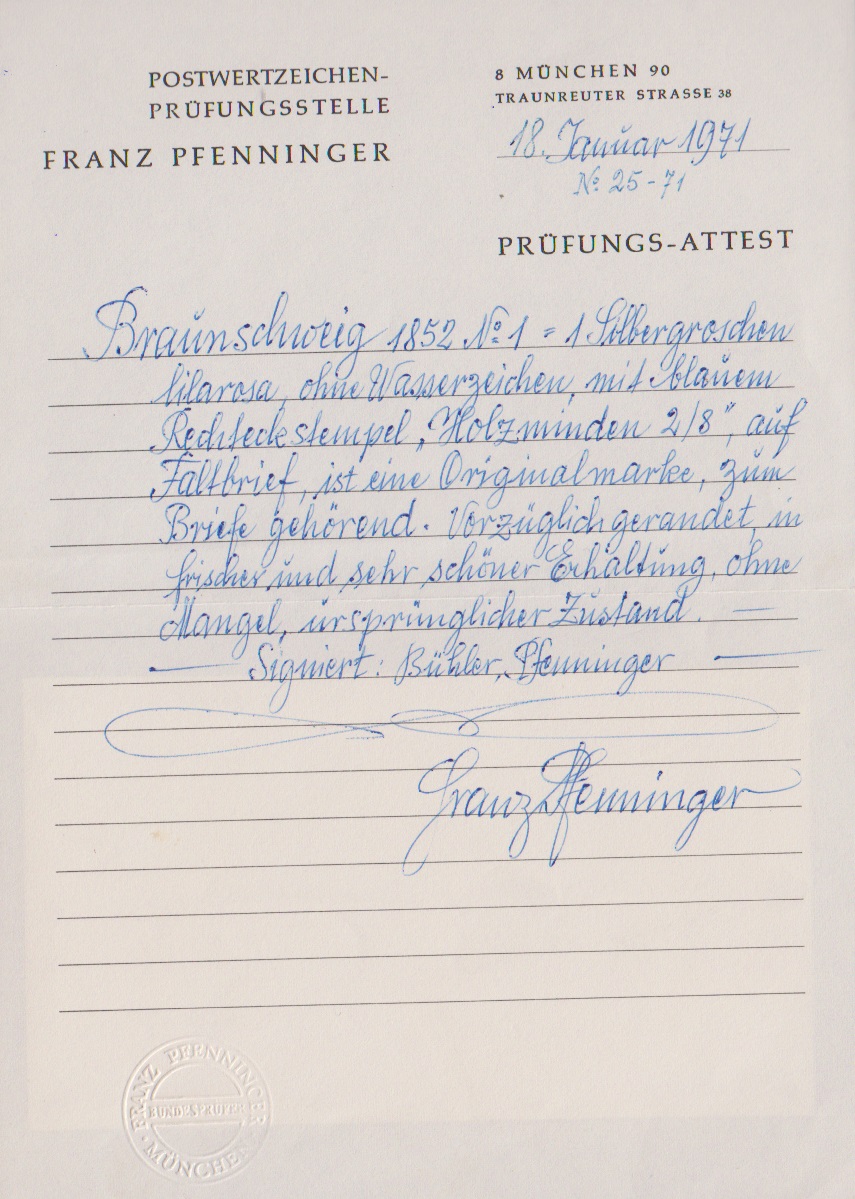 POSTWERTZEICHEN-
PRÜFUNGSSTELLE
FRANZ PFENNINGER
8 MÜNCHEN 90
TRAUNREUTER STRASSE 38
18. Januar 1971
No. 25-71
PRÜFUNGS-ATTEST
Braunschweig 1852 No. 1 = 1 Silbergroschen
lilarosa, ohne Wasserzeichen, mit blauem
Rechteckstempel „Holzminden 2/8", auf
Faltbrief, ist eine Originalmarke, zum
Briefe gehörend. Vorzüglich gerandet, in
frischer und sehr schöner Erhaltung, ohne
Mangel, ursprünglicher Zustand. —
— Signiert: Bühler, Pfenninger —
Franz Pfenninger
FRANZ PFENNINGER
BUNDESPRÜFER
· MÜNCHEN ·